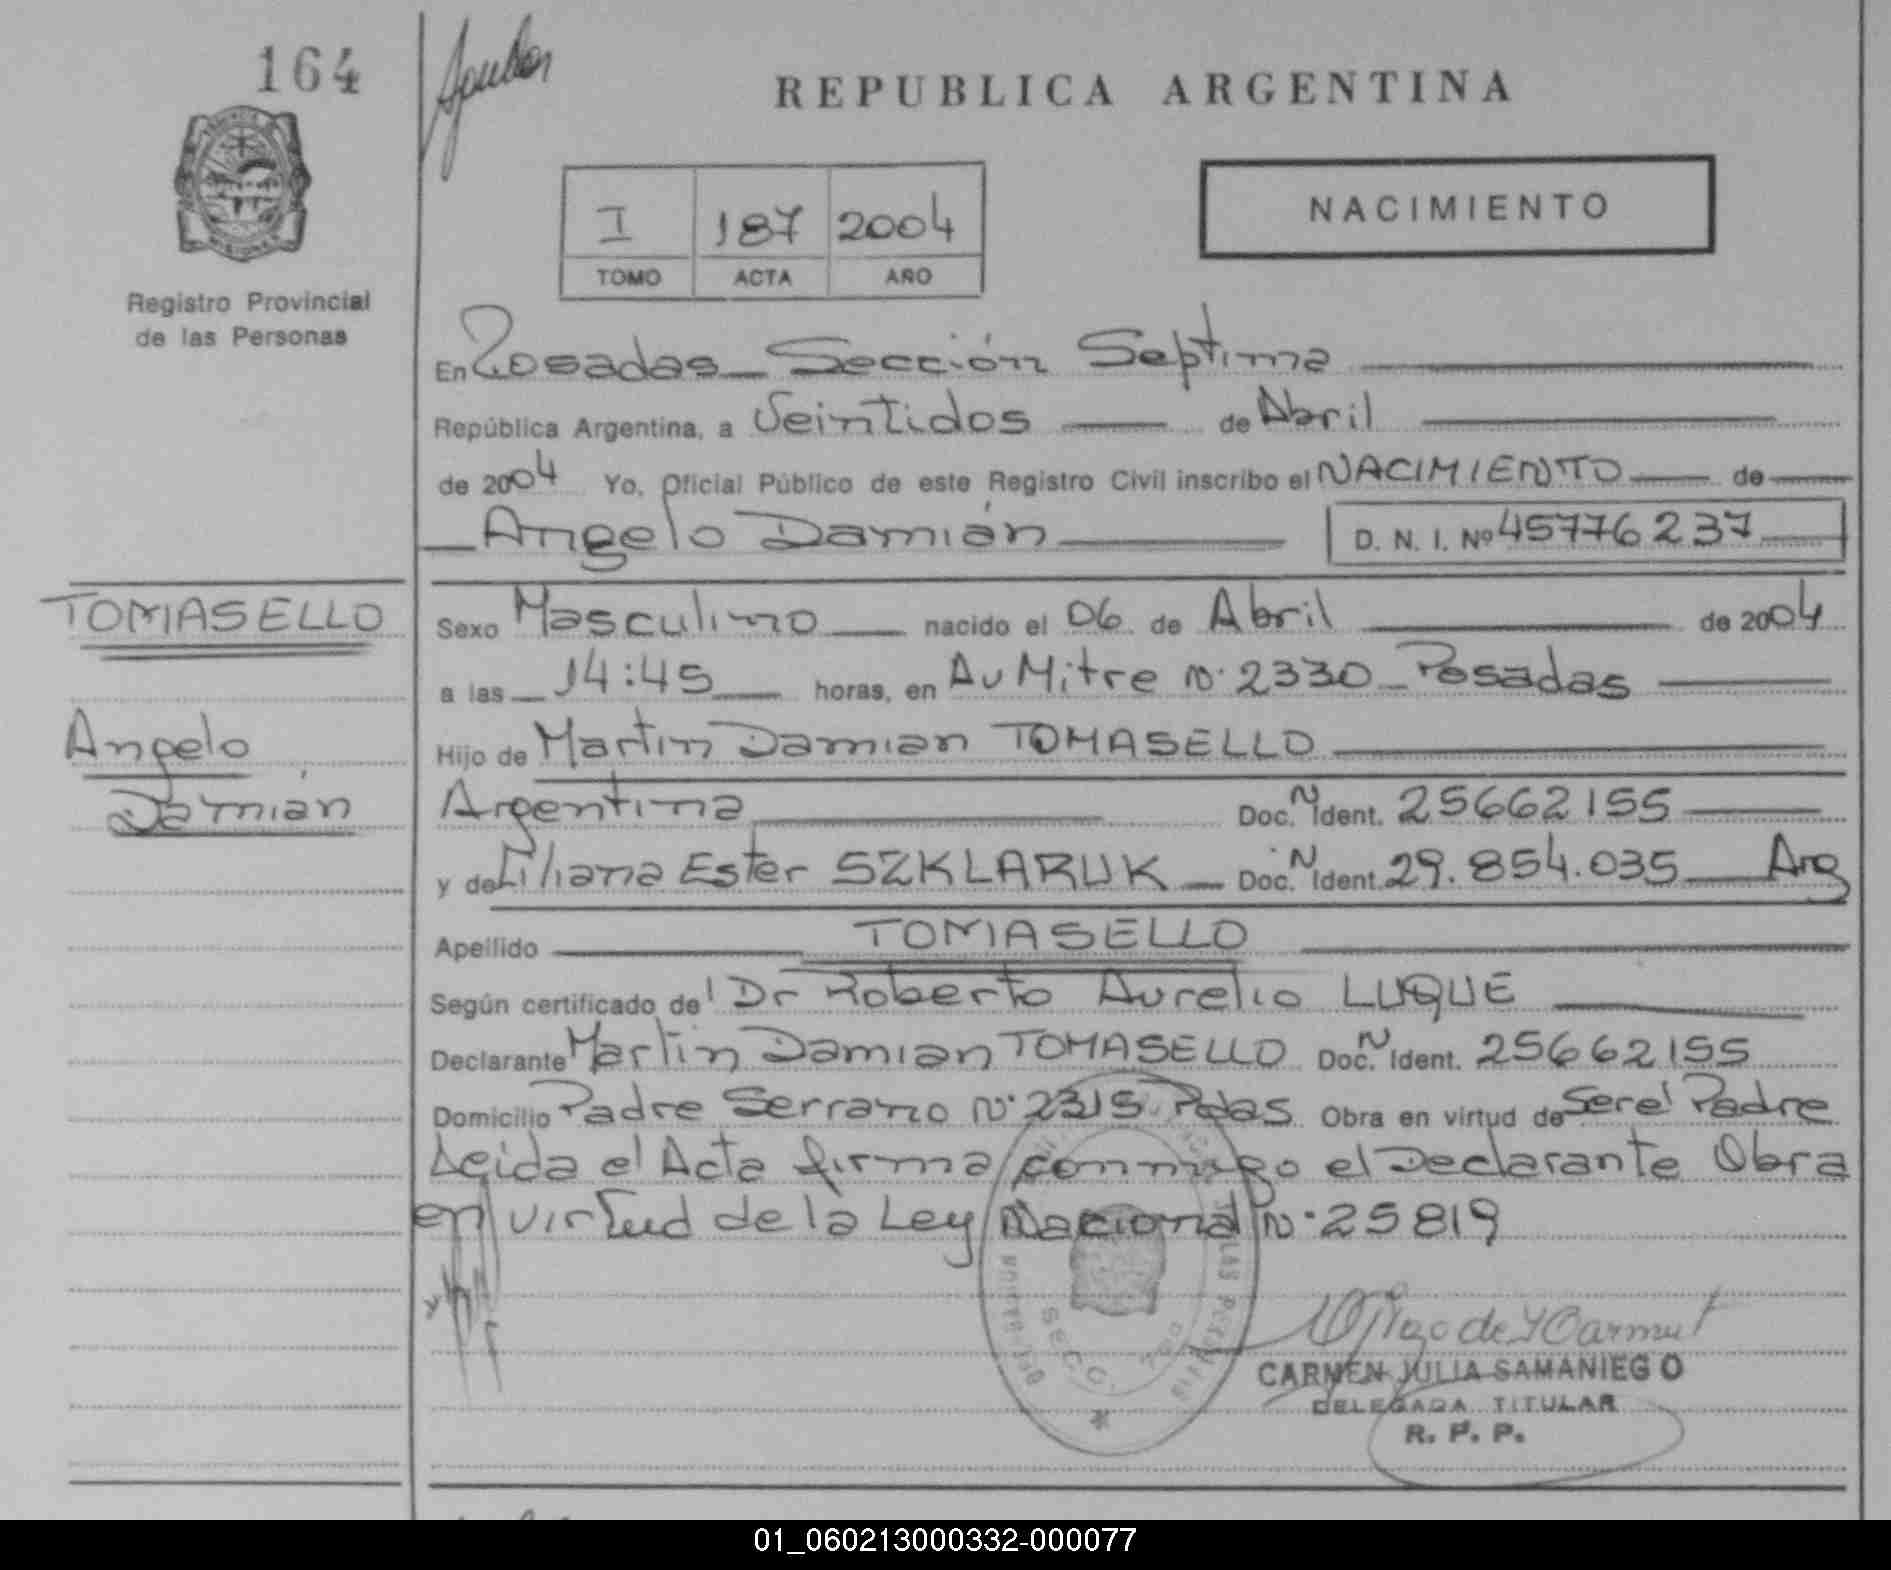 164
REPUBLICA ARGENTINA
NACIMIENTO
I 187 2004
TOMO ACTA AÑO
Registro Provincial
de las Personas
En Posadas - Sección Septima
República Argentina, a Veintidos de Abril
de 2004 Yo, Oficial Público de este Registro Civil inscribo el NACIMIENTO de
Angelo Damián D. N. I. Nº 45776237
TOMASELLO
Angelo
Damián
Sexo Masculino nacido el 06 de Abril de 2004
a las 14:45 horas, en Av Mitre N· 2330 - Posadas
Hijo de Martin Damian TOMASELLO
Argentina Doc. N Ident. 25662155
y de Liliana Ester SZKLARUK Doc. N Ident. 29.854.035 Arg
Apellido TOMASELLO
Según certificado de l Dr Roberto Aurelio LUQUE
Declarante Martin Damian TOMASELLO Doc. N Ident. 25662155
Domicilio Padre Serrano N· 2315 Pdas Obra en virtud de Ser el Padre
Leida el Acta firma conmigo el Declarante Obra
en virtud de la Ley Nacional N· 25819
SECC. 7ma
CARMEN JULIA SAMANIEGO
DELEGADA TITULAR
R. P. P.
01_060213000332-000077